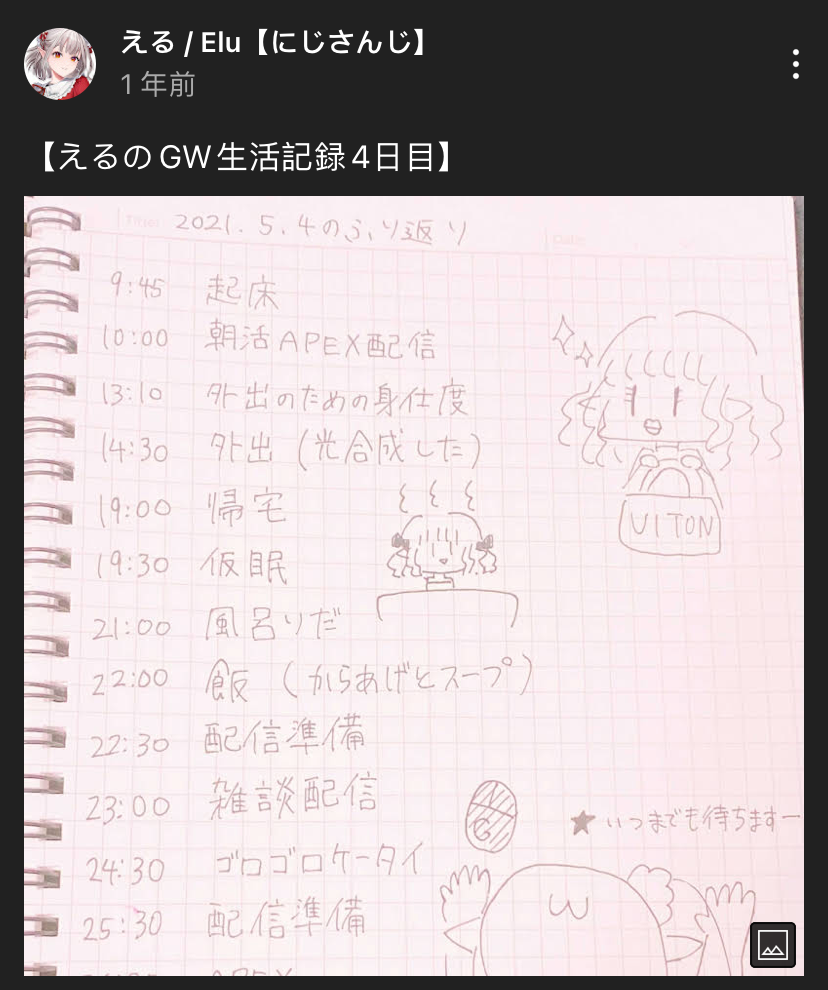 える / Elu【にじさんじ】
1 年前
【えるのGW生活記録4日目】
Title
2021. 5. 4のふり返り
Date
9:45 起床
10:00 朝活APEX配信
13:10 外出のための身仕度
14:30 外出 (光合成した)
19:00 帰宅
UITON
19:30 仮眠
21:00 風呂りだ
22:00 飯 (からあげとスープ)
22:30 配信準備
23:00 雑談配信
NG
★いつまでも待ちますー
24:30 ゴロゴロケータイ
25:30 配信準備
APEX